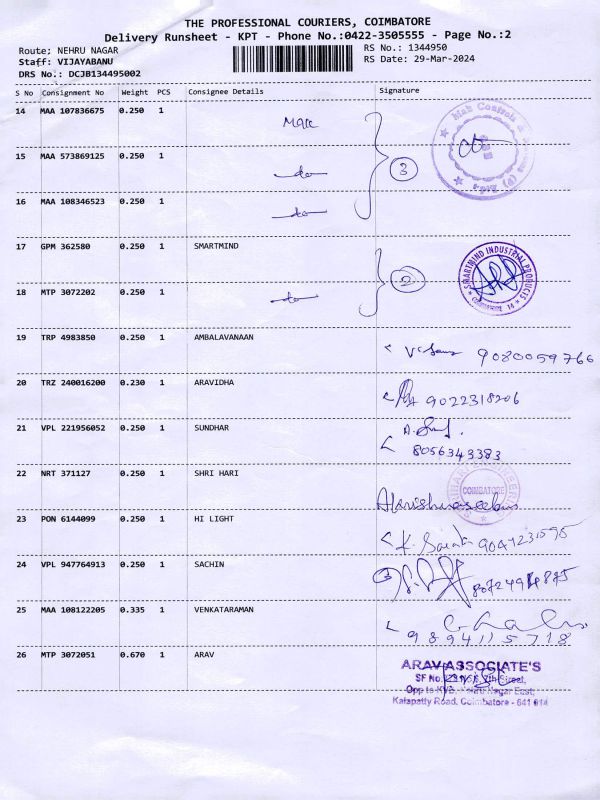 THE PROFESSIONAL COURIERS, COIMBATORE
Delivery Runsheet - KPT - Phone No.:0422-3505555 - Page No.:2
Route; NEHRU NAGAR
RS No.: 1344950
Staff: VIJAYABANU
RS Date: 29-Mar-2024
DRS No.: DCJB134495002
S No Consignment No Weight PCS Consignee Details Signature
14 MAA 107836675 0.250 1
15 MAA 573869125 0.250 1 do
3
16 MAA 108346523 0.250 1 do
17 GPM 362580 0.250 1 SMARTMIND
SMARTMIND INDUSTRIAL PRODUCTS
2
18 MTP 3072202 0.250 1 do
19 TRP 4983850 0.250 1 AMBALAVANAAN 9080059766
20 TRZ 240016200 0.230 1 ARAVIDHA 9022318206
21 VPL 221956052 0.250 1 SUNDHAR
8056343383
22 NRT 371127 0.250 1 SHRI HARI COIMBATORE
23 PON 6144099 0.250 1 HI LIGHT
24 VPL 947764913 0.250 1 SACHIN
25 MAA 108122205 0.335 1 VENKATARAMAN
9894115718
26 MTP 3072051 0.670 1 ARAV
ARAV ASSOCIATE'S
SF No. 7th Street,
Opp to Nehru Nagar East,
Kalapatty Road, Coimbatore - 641 014